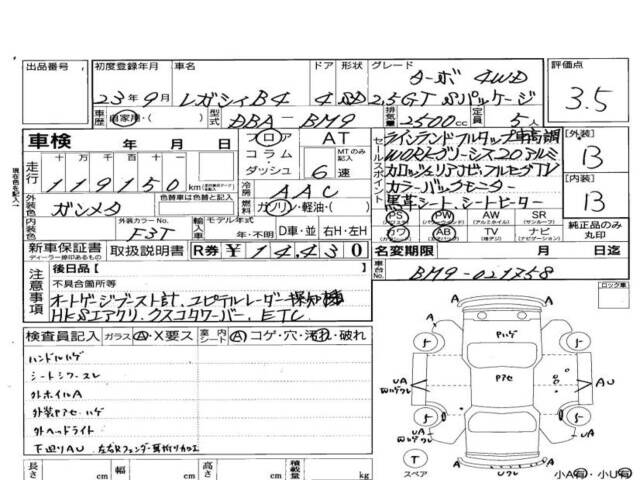 出品番号 初度登録年月 車名 ドア 形状 グレード 評価点
ターボ 4WD
23年9月 レガシィB4 4 SD 2.5GT Sパッケージ 3.5
車歴 自家用・( ) 型式 DBA-BM9 排気量 2500cc 定員 5人
車検 年 月 日 フロア コラム ダッシュ AT MTのみ記入 6速
セールスポイント
[外装] B
走行 十万千百十 119150 km
カロッツェリアナビ フルセグTV
冷房 AAC
カラーバックモニター
[内装] B
外装色 ガンメタ 色替車は色替と記入 燃料 ガソリン・軽油・( )
黒革シート、シートヒーター
内装色 外装カラーNo. F3T 輸入車 モデル年式 年・不明 D車・並 右H・左H
PS (パワステ) PW (パワーウィンドウ) AW (アルミホイル) SR (サンルーフ)
カワ AB (エアバッグ) TV ナビ (ナビゲーション)
純正品のみ丸印
新車保証書 取扱説明書 R券 ¥14,430
ディーラー捺印あるもの
名変期限 月 日迄
現在色を記入
注意事項 後日品[ ]
車台No. BM9-021758
不具合箇所等
ロック車
オートゲージブースト計、ユピテルレーダー探知機
HKSエアクリ、クスコタワーバー、ETC
検査員記入 ガラス A・X要ス 室内 シート A コゲ・穴・汚れ・破れ
ハンドルハゲ
シートシワ・スレ
外ホイルA
外装PアセハゲA
外ヘッドライト
下廻りAU 左右Rフェンダー耳折り加工
長さ cm 幅 cm 高さ cm 積載量 kg
A A
Pハゲ
5 5
UA
Pアセ
AU
5 5
T
スペア
Uワレ
小A有・小U有